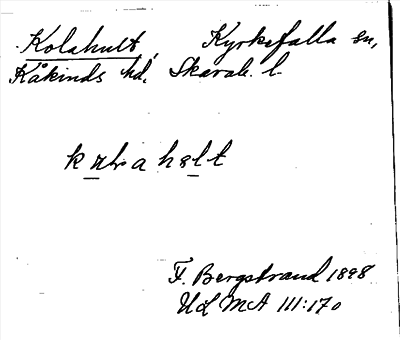 Kolahult, Kyrkefalla sn,
Kåkinds hd. Skarab. l.
F. Bergstrand 1898
Ud MA III:170